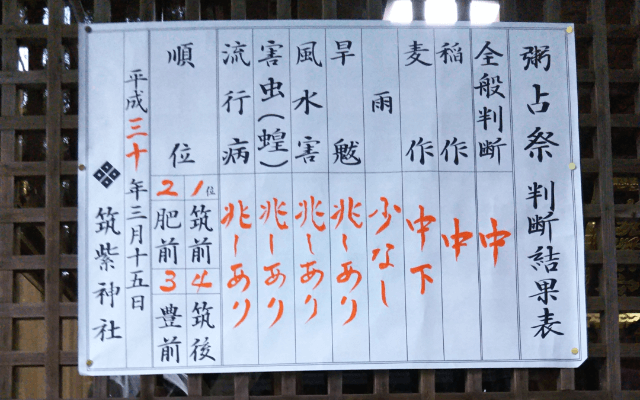 粥占祭 判断結果表
全般判断 中
稲作 中
麦作 中下
雨 少なし
旱魃 兆しあり
風水害 兆しあり
害虫(蝗) 兆しあり
流行病 兆しあり
順位 1位 筑前 4 筑後
2 肥前 3 豊前
平成三十年三月十五日
筑紫神社